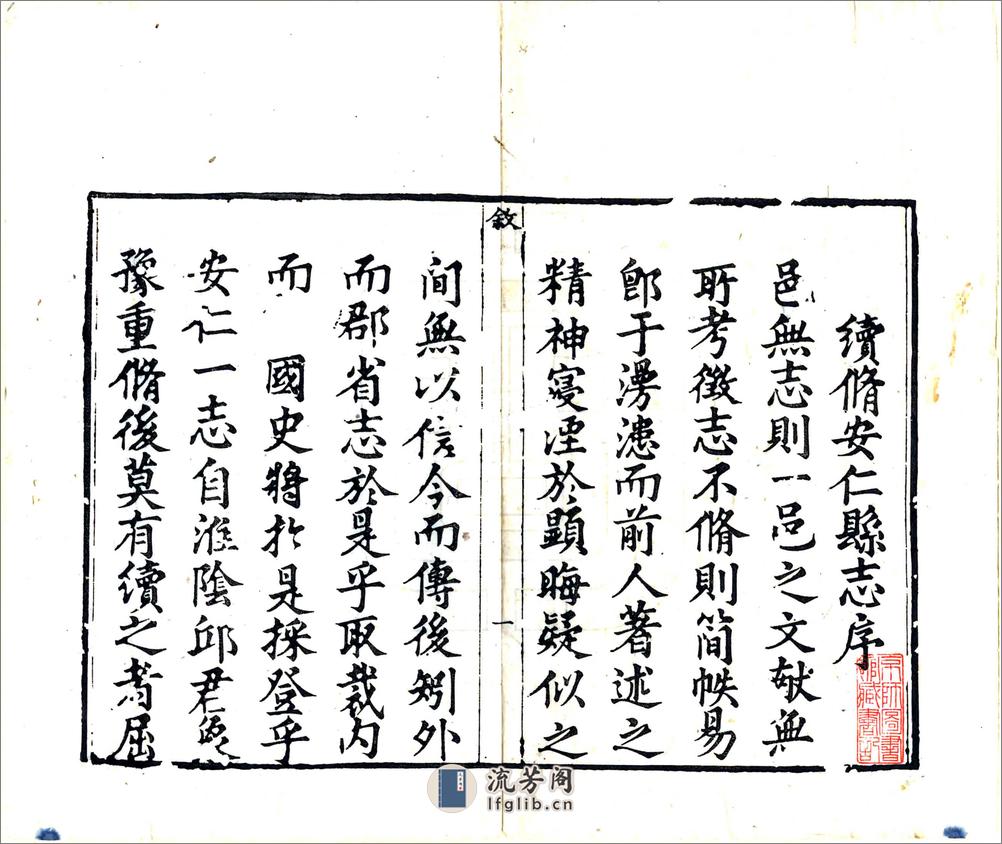 續脩安仁縣志序
邑無志則一邑之文献無
所考徵志不脩則簡帙易
卽于漫漶而前人著述之
精神寖湮於顯晦疑似之
敘
一
間無以信今而傳後矧外
而郡省志於是乎取裁内
而　國史將於是採登乎
安仁一志自淮陰邱君
豫重脩後莫有續之者屈
京師圖書館藏書記
流芳阁
lfglib.cn